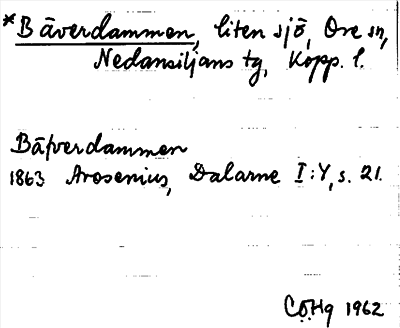 *Bäverdammen, liten sjö, Ore sn,
Nedansiljans tg, Kopp. l.
Bäfverdammen
1863 Arosenius, Dalarne I:Y, s. 21.
COHg 1962